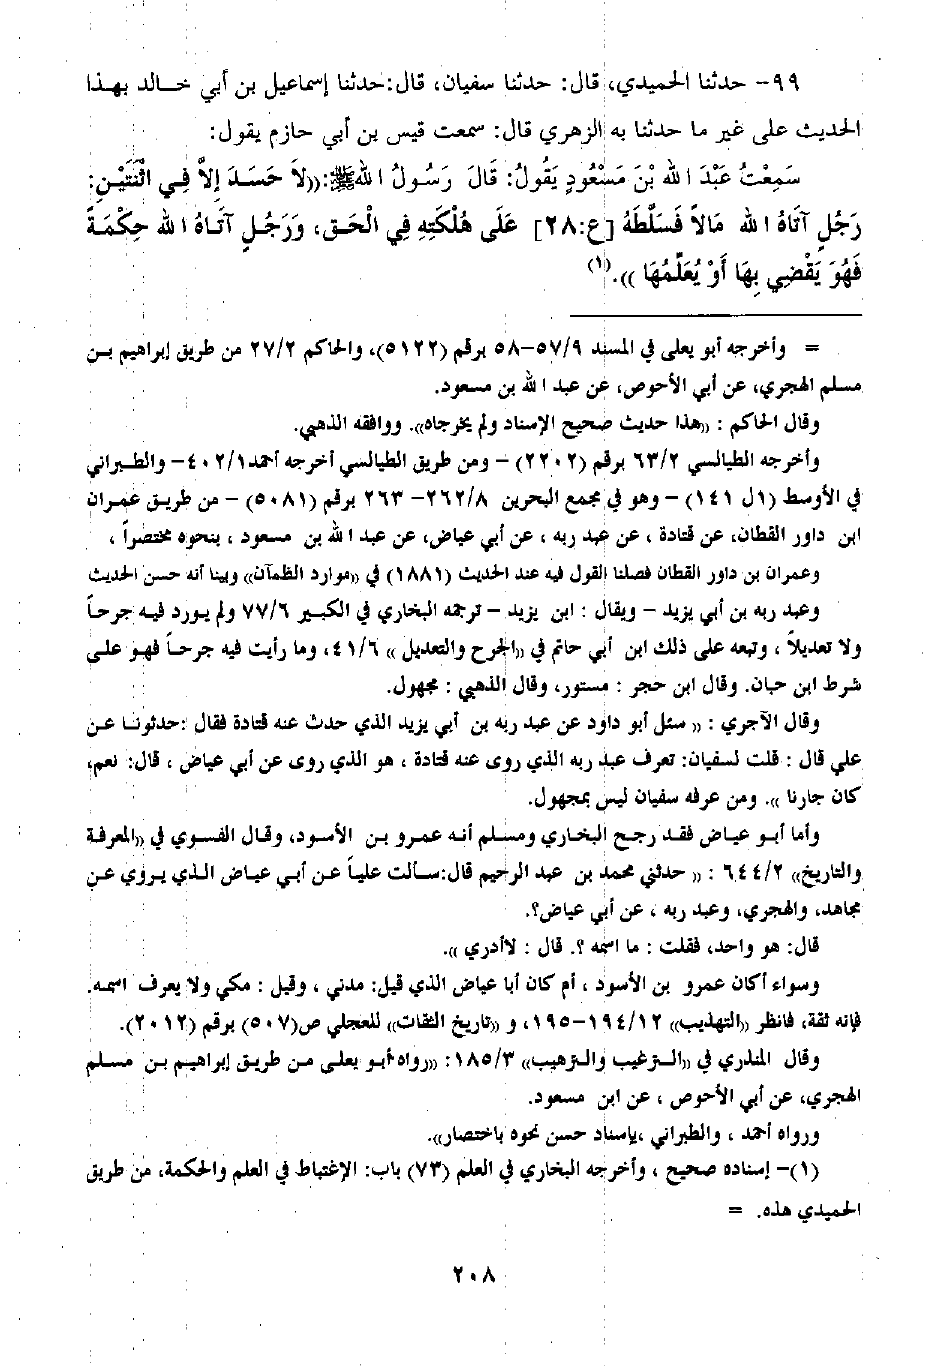 ٩٩- حدثنا الحميدي، قال: حدثنا سفيان، قال:حدثنا إسماعيل بن أبي خالد بهذا
الحديث على غير ما حدثنا به الزهري قال: سمعت قيس بن أبي حازم يقول:
سَمِعْتُ عَبْدَ الله بْنَ مَسْعُودٍ يَقُولُ: قَالَ رَسُولُ اللهﷺ:((لاَ حَسَدَ إِلاَّ فِي اثْنَتَيْنِ:
رَجُلٍ آتَاهُ الله مَالاً فَسَلَّطَهُ [ع:٢٨] عَلَى هُلْكَتِهِ فِي الْحَقِ، وَرَجُلٍ آتَاهُ الله حِكْمَةً
فَهُوَ يَقْضِي بِهَا أَوْ يُعَلِّمُهَا )).(١)
= وأخرجه أبو يعلى في المسند ٥٧/٩-٥٨ برقم (٥١٢٢)، والحاكم ٢٧/٢ من طريق إبراهيم بن
مسلم الهجري، عن أبي الأحوص، عن عبد الله بن مسعود.
وقال الحاكم : ((هذا حديث صحيح الإسناد ولم يخرجاه)). ووافقه الذهبي.
وأخرجه الطيالسي ٦٣/٢ برقم (٢٢٠٢) - ومن طريق الطيالسي أخرجه أحمد٤٠٢/١- والطبراني
في الأوسط (١ل ١٤١) - وهو في مجمع البحرين ٢٦٢/٨- ٢٦٣ برقم (٥٠٨١) - من طريق عمران
ابن داور القطان، عن قتادة ، عن عبد ربه ، عن أبي عياض، عن عبد الله بن مسعود ، بنحوه مختصراً ،
وعمران بن داور القطان فصلنا القول فيه عند الحديث (١٨٨١) في ((موارد الظمآن)) وبينا أنه حسن الحديث
وعبد ربه بن أبي يزيد - ويقال : ابن يزيد - ترجمه البخاري في الكبير ٧٧/٦ ولم يورد فيه جرحاً
ولا تعديلاً ، وتبعه على ذلك ابن أبي حاتم في ((الجرح والتعديل )) ٤١/٦، وما رأيت فيه جرحاً فهو على
شرط ابن حبان. وقال ابن حجر : مستور، وقال الذهبي : مجهول.
وقال الآجري : (( سئل أبو داود عن عبد ربه بن أبي يزيد الذي حدث عنه قتادة فقال :حدثونا عن
علي قال : قلت لسفيان: تعرف عبد ربه الذي روى عنه قتادة ، هو الذي روى عن أبي عياض ، قال: نعم،
كان جارنا )). ومن عرفه سفيان ليس بمجهول.
وأما أبو عياض فقد رجح البخاري ومسلم أنه عمرو بن الأسود، وقال الفسوي في ((المعرفة
والتاريخ)) ٦٤٤/٢ : (( حدثني محمد بن عبد الرحيم قال:سألت علياً عن أبي عياض الذي يروي عن
مجاهد، والهجري، وعبد ربه ، عن أبي عياض؟.
قال: هو واحد، فقلت : ما اسمه ؟. قال : لاأدري )).
وسواء أكان عمرو بن الأسود ، أم كان أبا عياض الذي قيل: مدني ، وقيل : مكي ولا يعرف اسمه.
فإنه ثقة، فانظر ((التهذيب)) ١٩٤/١٢-١٩٥، و ((تاريخ الثقات)) للعجلي ص(٥٠٧) برقم (٢٠١٢).
وقال المنذري في ((الترغيب والترهيب)) ١٨٥/٣: ((رواه أبو يعلى من طريق إبراهيم بن مسلم
الهجري، عن أبي الأحوص ، عن ابن مسعود.
ورواه أحمد ، والطبراني ،بإسناد حسن نحوه باختصار)).
(١)- إسناده صحيح ، وأخرجه البخاري في العلم (٧٣) باب: الإغتباط في العلم والحكمة، من طريق
الحميدي هذه. =
٢٠٨